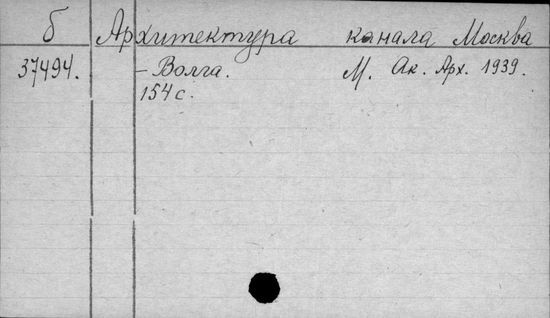 б Архитектура канала Москва
37494. - Волга. М. Ак. Арх. 1939.
154 с.